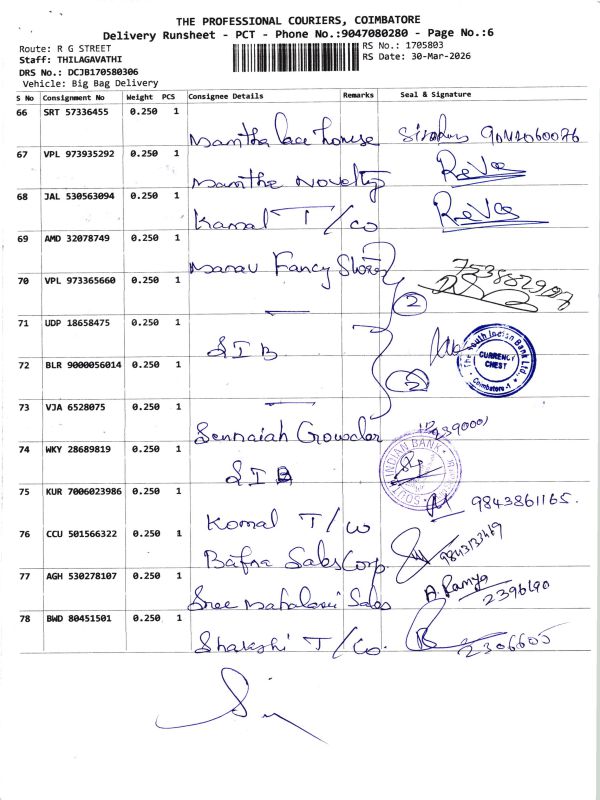 THE PROFESSIONAL COURIERS, COIMBATORE
Delivery Runsheet - PCT - Phone No.:9047080280 - Page No.:6
Route: R G STREET
RS No.: 1705803
Staff: THILAGAVATHI
RS Date: 30-Mar-2026
DRS No.: DCJB170580306
Vehicle: Big Bag Delivery
S No Consignment No Weight PCS Consignee Details Remarks Seal & Signature
66 SRT 57336455 0.250 1
Mamtha lace house
67 VPL 973935292 0.250 1
Mamtha Novelty
68 JAL 530563094 0.250 1
Kamal T/co
69 AMD 32078749 0.250 1
Manav Fancy Stores
70 VPL 973365660 0.250 1
2
71 UDP 18658475 0.250 1
SIB
The South Indian Bank Ltd.,
CURRENCY CHEST
Coimbatore-1
72 BLR 9000056014 0.250 1
73 VJA 6528075 0.250 1
Sennaiah Gowder
74 WKY 28689819 0.250 1
SIB
SOUTH INDIAN BANK
75 KUR 7006023986 0.250 1
9843861165.
Komal T/co
76 CCU 501566322 0.250 1
Bafna Sales Corp.
77 AGH 530278107 0.250 1
A. Ramya
Sree Mahalaxmi Sales
2396490
78 BWD 80451501 0.250 1
Shakshi T/Co.
2306605